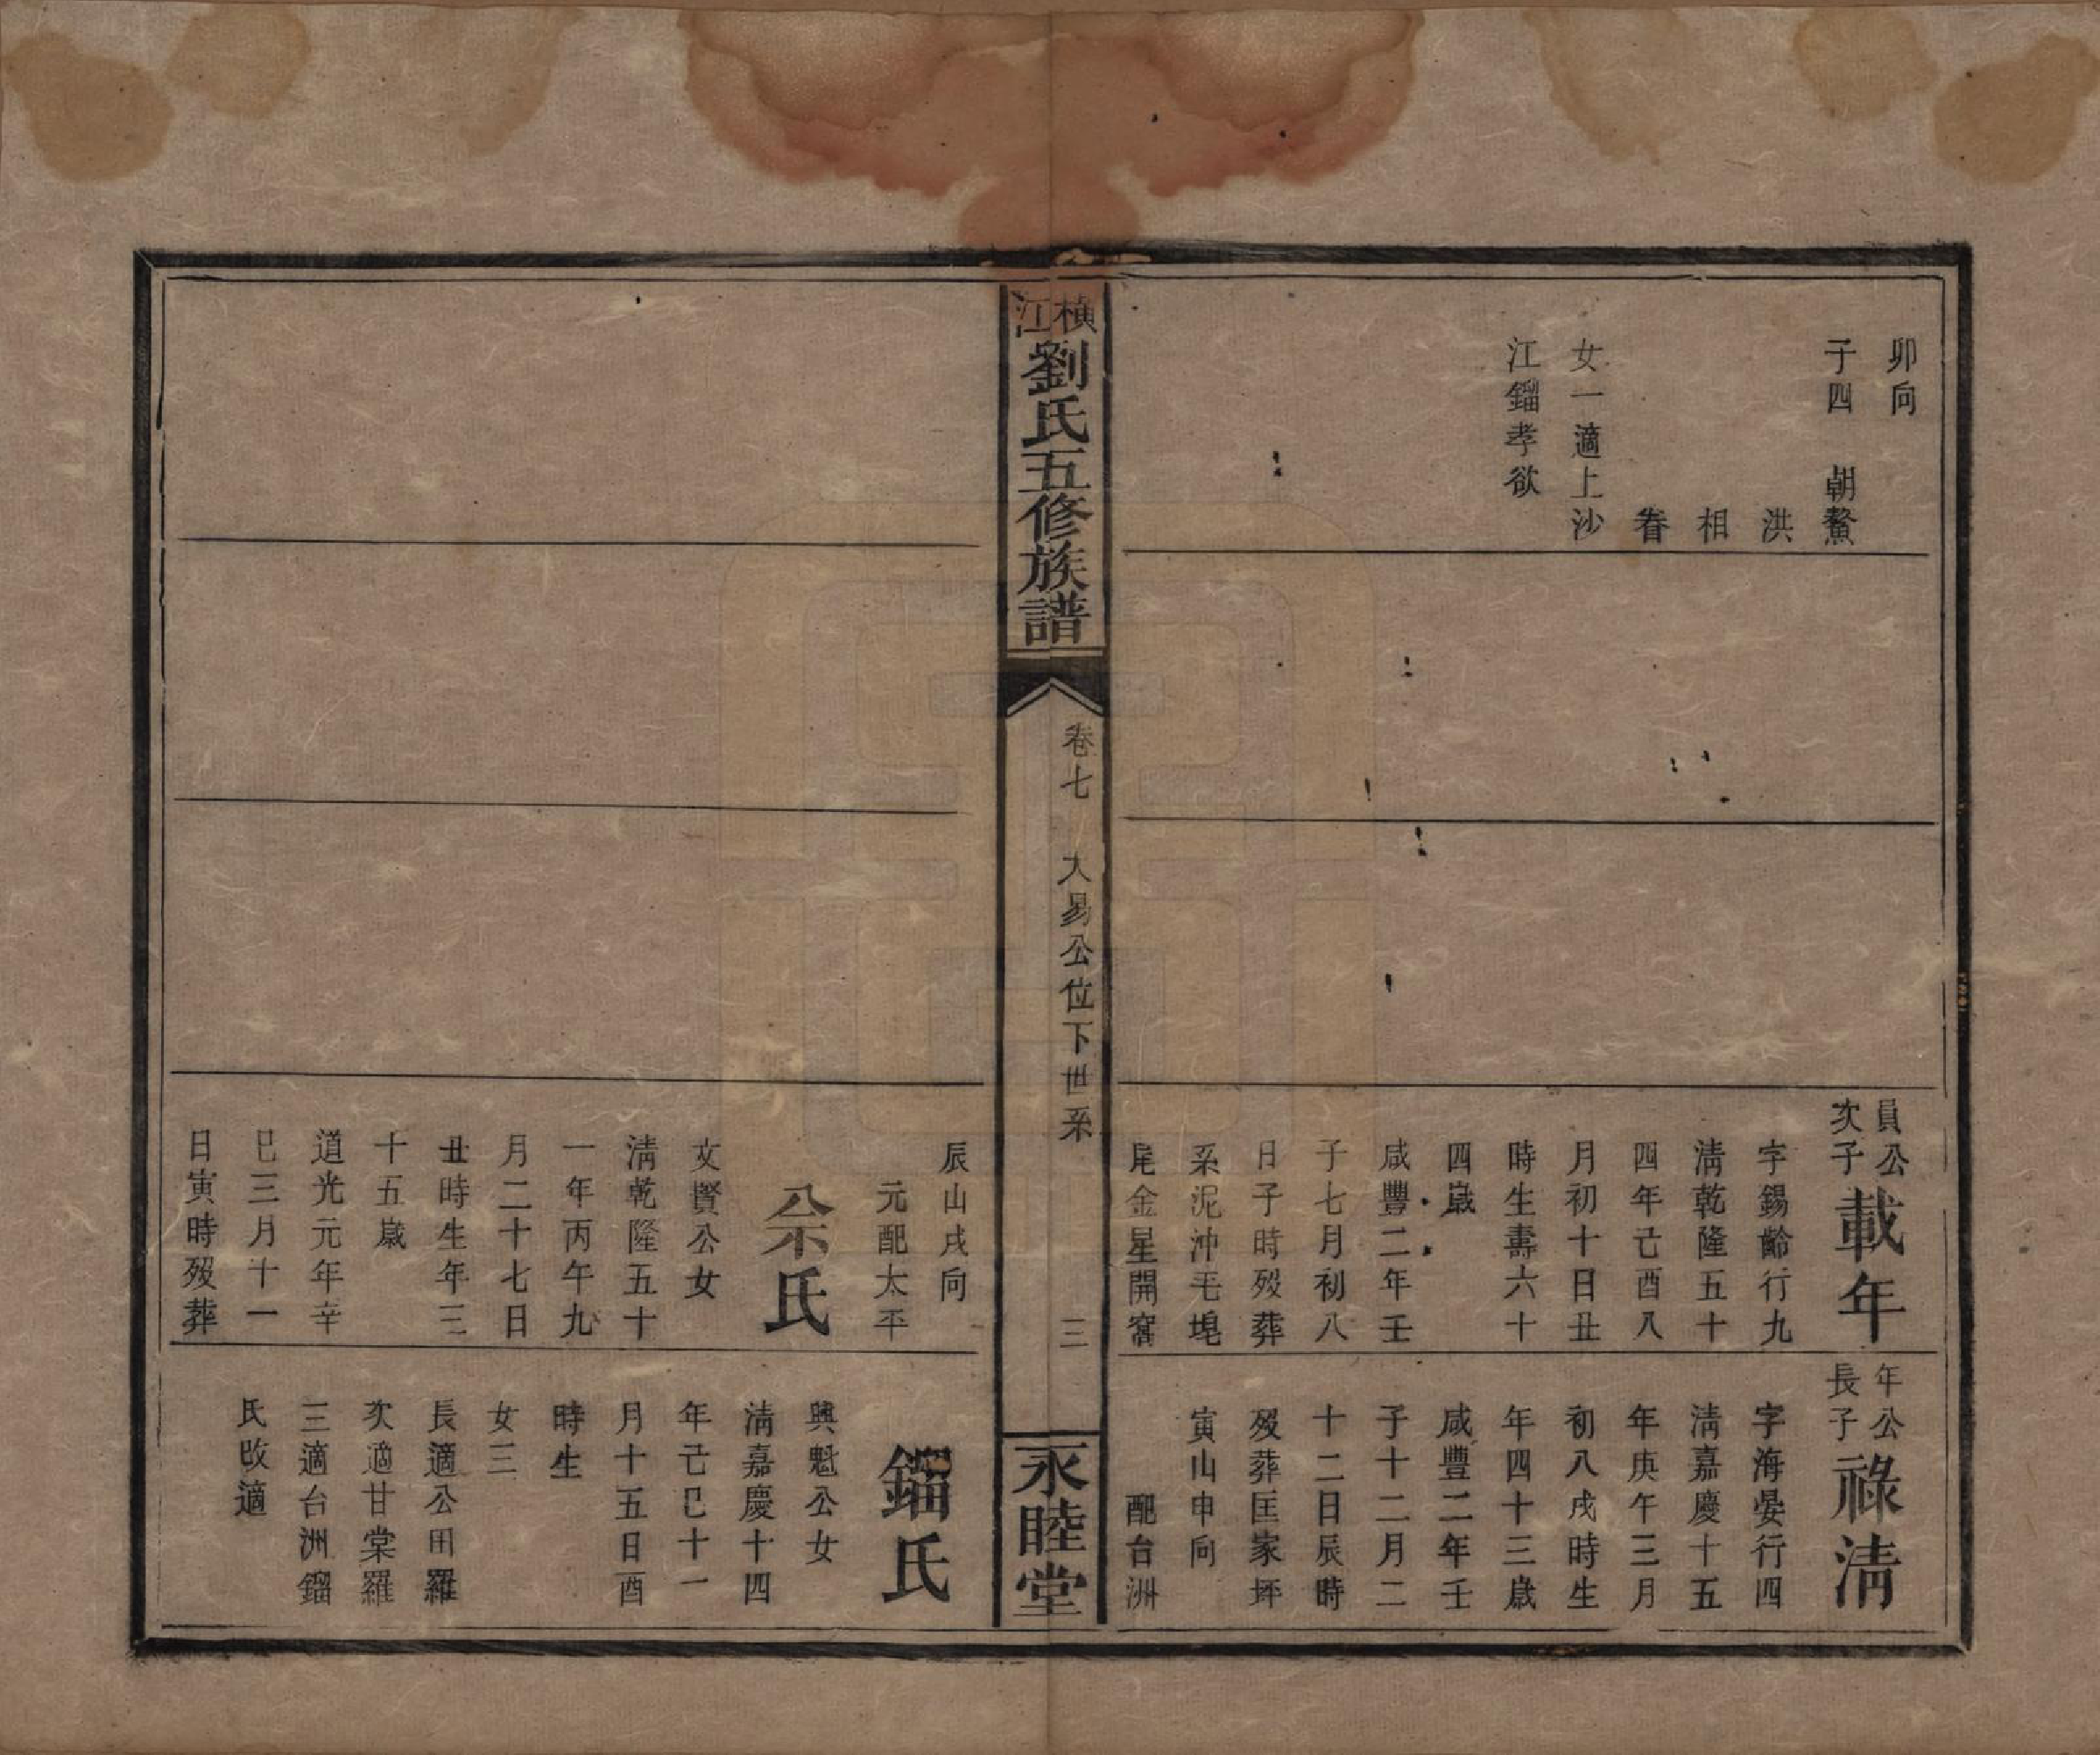 卯向
子四　朝鰲
洪
相
眷
女一適上沙
江鎦孝欲
員公
次子
載年
字錫齡行九
淸乾隆五十
四年己酉八
月初十日丑
時生壽六十
四歲
咸豐二年壬
子七月初八
日子時歿葬
系泥沖毛塅
尾金星開窩
年公
長子
祿淸
字海晏行四
淸嘉慶十五
年庚午三月
初八戌時生
年四十三歲
咸豐二年壬
子十二月二
十二日辰時
歿葬匡家坪
寅山申向
配台洲
橫江
劉氏五修族譜
卷七　大易公位下世系
三
永睦堂
辰山戌向
元配太平
佘氏
文賢公女
淸乾隆五十
一年丙午九
月二十七日
丑時生年三
十五歲
道光元年辛
巳三月十一
日寅時歿葬
鎦氏
興魁公女
淸嘉慶十四
年己巳十一
月十五日酉
時生
女三
長適公田羅
次適甘棠羅
三適台洲鎦
氏改適